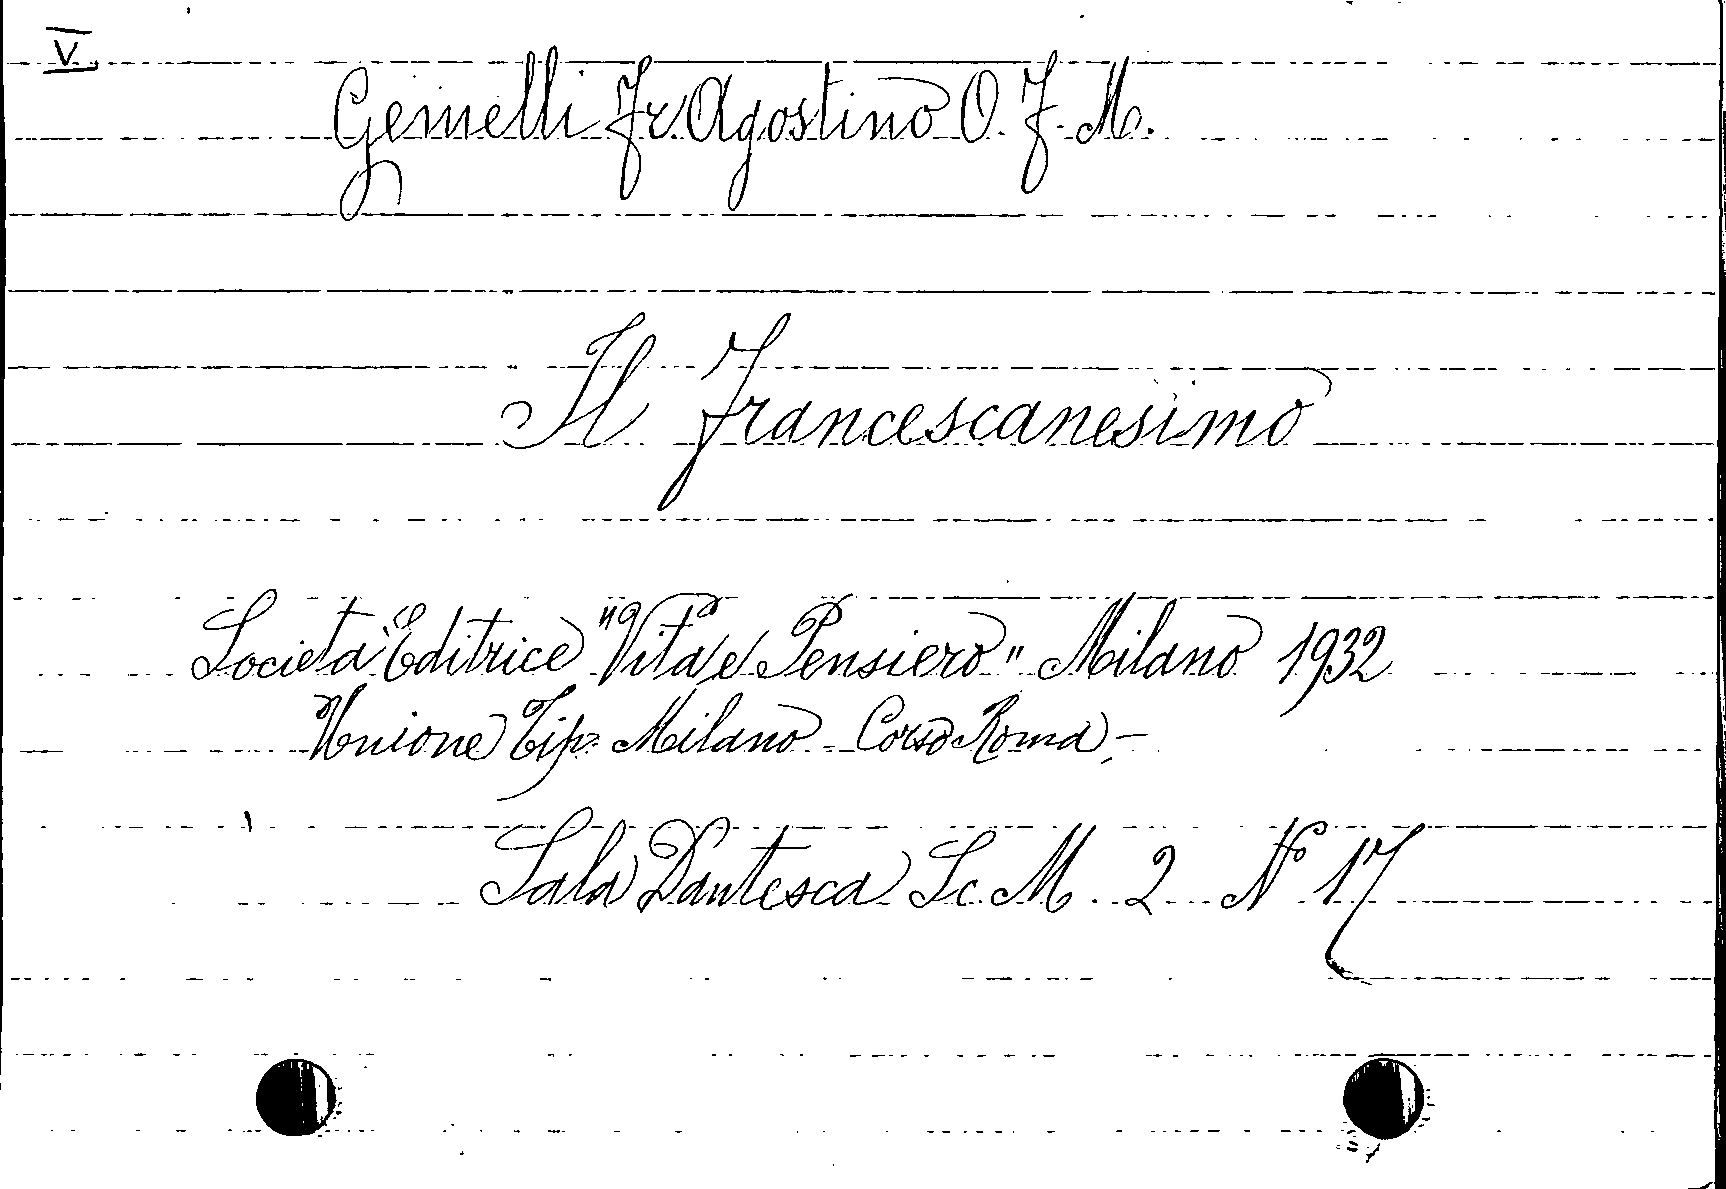 V.
Gemelli Fr. Agostino O. F. M.
Il Francescanesimo
Società Editrice "Vita e Pensiero" Milano 1932
Unione Tip. Milano Corso Roma, -
Sala Dantesca Sc. M. 2 N° 17